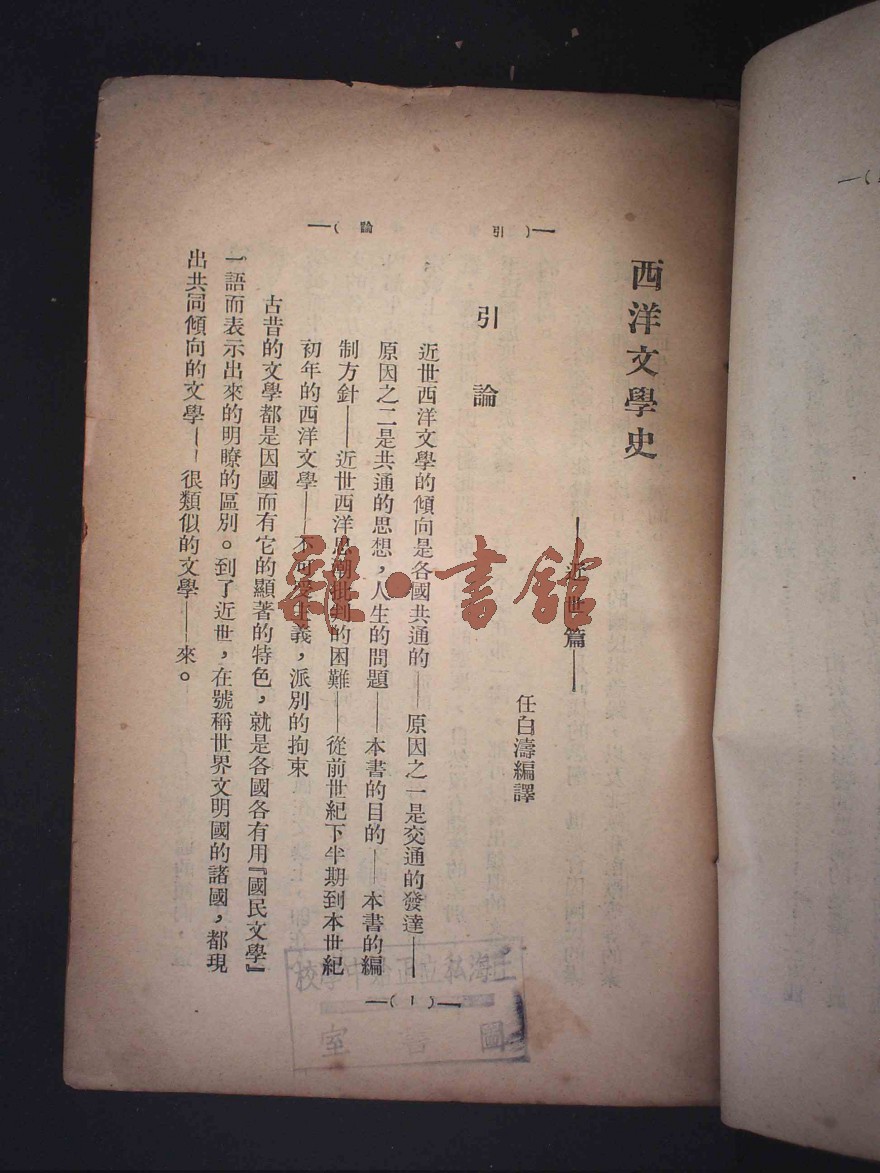 西洋文學史
——近世篇——
任白濤編譯
引論
近世西洋文學的傾向是各國共通的——原因之一是交通的發達——
原因之二是共通的思想，人生的問題——本書的目的——本書的編
制方針——近世西洋思潮批判的困難——從前世紀下半期到本世紀
初年的西洋文學——不可受主義，派別的拘束
古昔的文學都是因國而有它的顯著的特色，就是各國各有用『國民文學』
一語而表示出來的明瞭的區別。到了近世，在號稱世界文明國的諸國，都現
出共同傾向的文學——很類似的文學——來。
—(論 引)—
—(1)—
上海私立正 中學校
圖書室
雜·書館